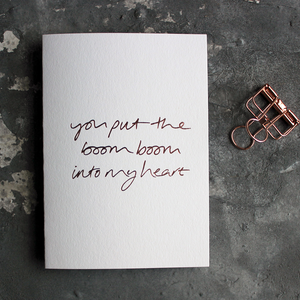 you put the
boom boom
into my heart